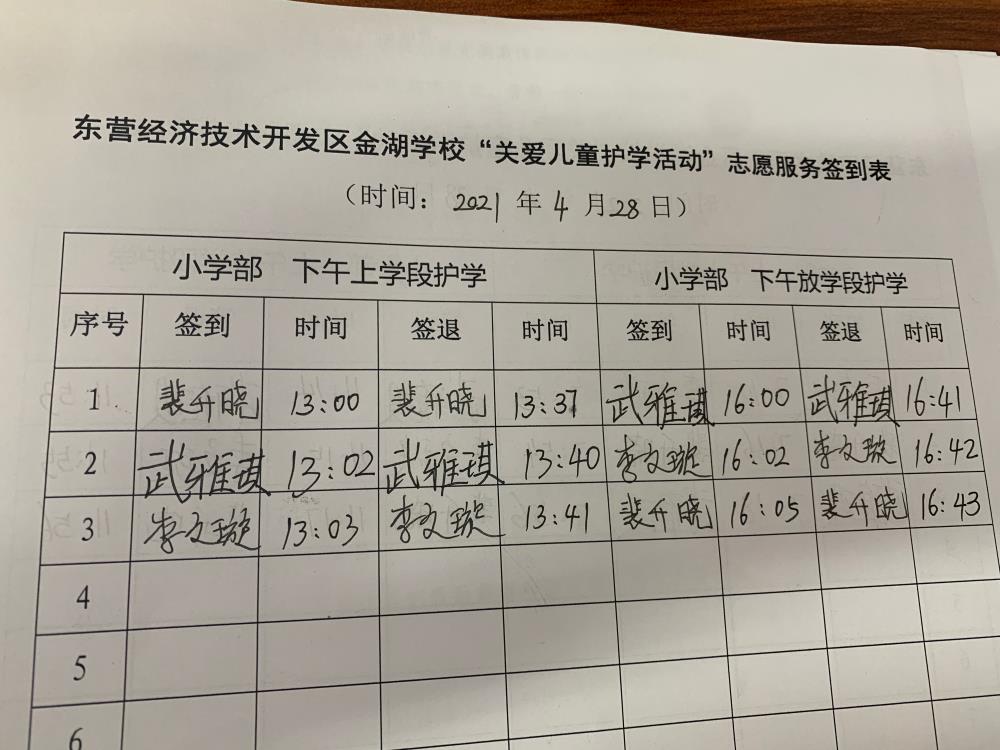 东营经济技术开发区金湖学校“关爱儿童护学活动”志愿服务签到表
（时间：2021年4月28日）
小学部 下午上学段护学 小学部 下午放学段护学
序号 签到 时间 签退 时间 签到 时间 签退 时间
1 裴升晓 13:00 裴升晓 13:37 武雅琪 16:00 武雅琪 16:41
2 武雅琪 13:02 武雅琪 13:40 李文璇 16:02 李文璇 16:42
3 李文璇 13:03 李文璇 13:41 裴升晓 16:05 裴升晓 16:43
4
5
6